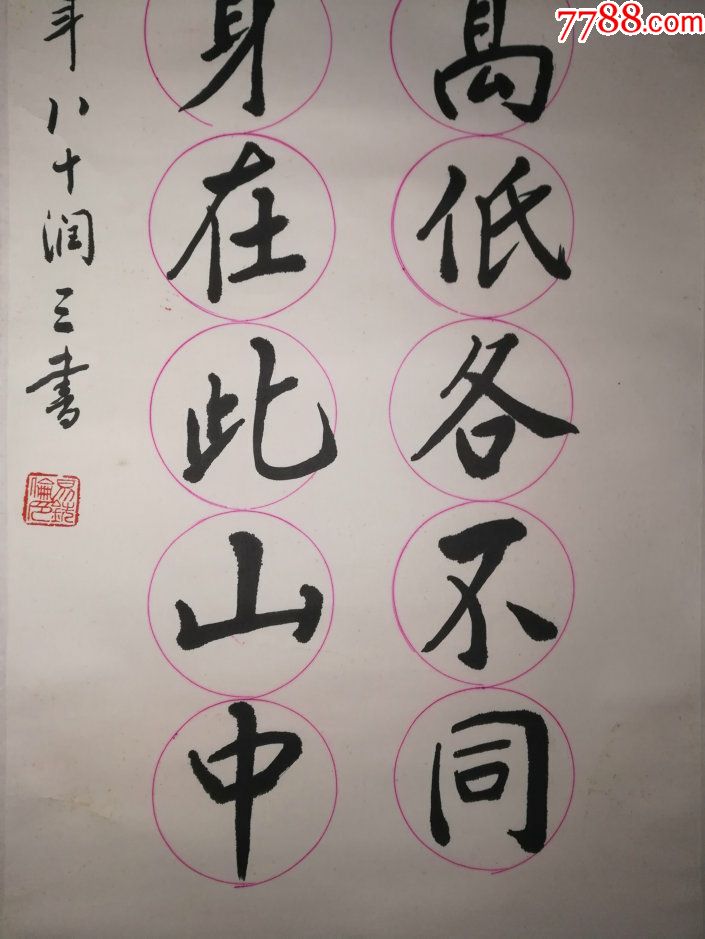 7788.com
高低各不同
身在此山中
年八十润三書